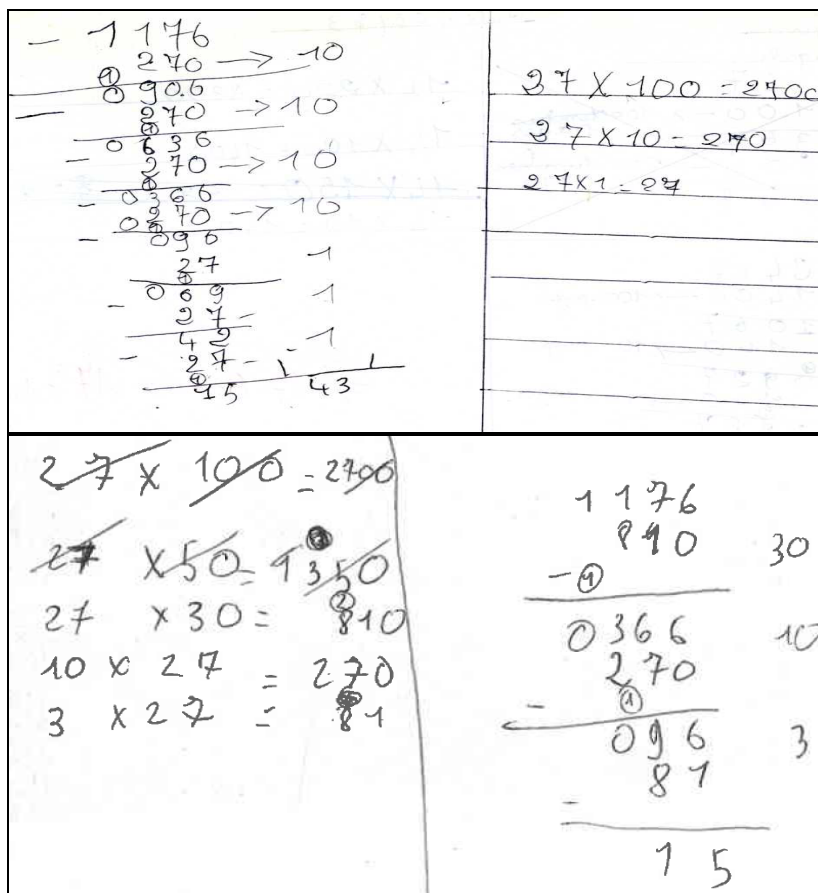 - 1176
270 → 10
① 
0 906
- 270 → 10
①
0 636
- 270 → 10
①
0366
- 270 → 10
0 ①
096
- 27 1
①
0 69 1
- 27 -
42 1
- 27 -
①
15 43
27 X 100 = 2700
27 X 10 = 270
27 x 1 = 27
27 x 100 = 2700
27 x 50 = 1350
②
27 x 30 = 810
10 x 27 = 270
3 x 27 = 81
1176
810 30
- ①
0366 10
270
- ①
096 3
81
-
15